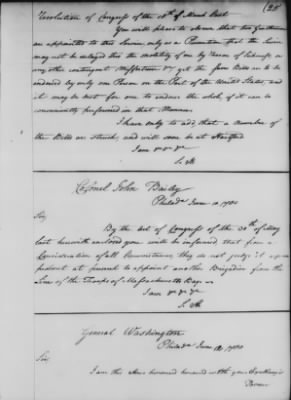 Resolution of Congress of the 18th of March last.
You will please to observe that two Gentlemen
are appointed to this Service, only as a Precaution that the Service
may not be delayed thro the inability of one by Reason of Sickness or
any other contingent Misfortune to get the Bills as to be
endorsed by only one Person on the Part of the United States, and
it may be best for one to endorse the whole, if it can be
conveniently performed in that Manner.
I have only to add, that a number of
the Bills are struck, and will soon be at Hartford
I am &c &c &c
S. H.
Colonel John Bailey
Philada June 10. 1780
Sir,
By the Act of Congress of the 30th of May
last herewith enclosed you will be informed that from a
Consideration of all Circumstances they do not judge it ex
pedient at present to appoint another Brigadier from the
Line of the Troops of Massachusetts Bay
I am &c &c &c
S. H.
General Washington
Philada June 12. 1780
Sir,
I am this Hour honored with your Excellency's